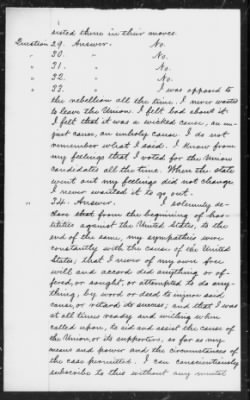 sisted them in their moves.
Question 29. Answer. No.
" 30. " No.
" 31. " No.
" 32. " No.
" 33. " I was opposed to
the rebellion all the time. I never wanted
to leave the Union. I felt bad about it.
I felt that it was a wicked cause, an un-
just cause, an unholy cause. I do not
remember what I said. I know from
my feelings that I voted for the Union
candidates all the time. When the state
went out my feelings did not change
I never wanted it to go out.
" 34. Answer. I solemnly de-
clare that from the beginning of hos-
tilities against the United States, to the
end of the same, my sympathies were
constantly with the cause of the United
States; that I never of my own free
will and accord did anything, or of-
fered, or sought, or attempted to do any-
thing, by word or deed to injure said
cause, or retard its success, and that I was
at all times ready and willing when
called upon, to aid and assist the cause of
the Union, or its supporters, so far as my
means and power and the circumstances of
the case permitted. I can conscientiously
subscribe to this without any mental